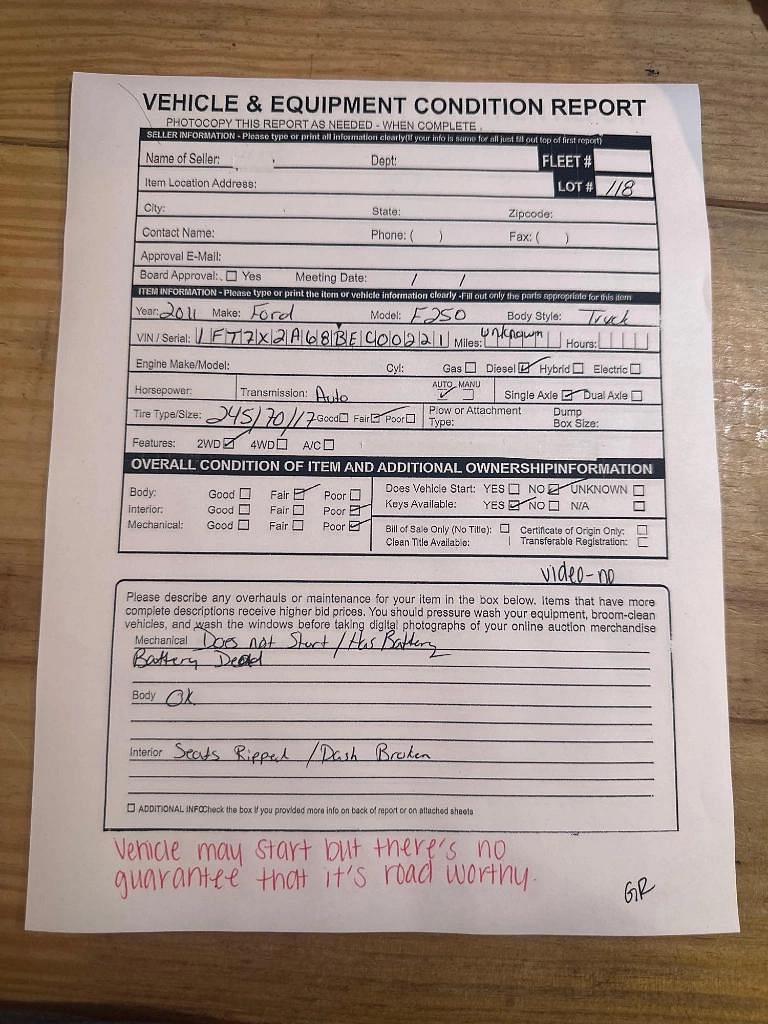 VEHICLE & EQUIPMENT CONDITION REPORT
PHOTOCOPY THIS REPORT AS NEEDED - WHEN COMPLETE
SELLER INFORMATION - Please type or print all information clearly(If your info is same for all just fill out top of first report)
Name of Seller: Dept: FLEET #
Item Location Address: LOT # 118
City: State: Zipcode:
Contact Name: Phone: ( ) Fax: ( )
Approval E-Mail:
Board Approval: ☐ Yes Meeting Date: / /
ITEM INFORMATION - Please type or print the item or vehicle information clearly -Fill out only the parts appropriate for this item
Year: 2011 Make: Ford Model: F250 Body Style: Truck
VIN / Serial: 1FT7X2A68BEC00221 Miles: unknown Hours:
Engine Make/Model: Cyl: Gas ☐ Diesel ☑ Hybrid ☐ Electric ☐
Horsepower: Transmission: Auto AUTO ☑ MANU ☐ Single Axle ☑ Dual Axle ☐
Tire Type/Size: 245/70/17 Good ☐ Fair ☑ Poor ☐ Plow or Attachment Type: Dump Box Size:
Features: 2WD ☑ 4WD ☐ A/C ☐
OVERALL CONDITION OF ITEM AND ADDITIONAL OWNERSHIPINFORMATION
Body: Good ☐ Fair ☑ Poor ☐ Does Vehicle Start: YES ☐ NO ☑ UNKNOWN ☐
Interior: Good ☐ Fair ☐ Poor ☑ Keys Available: YES ☑ NO ☐ N/A ☐
Mechanical: Good ☐ Fair ☐ Poor ☑ Bill of Sale Only (No Title): ☐ Certificate of Origin Only: ☐
Clean Title Available: Transferable Registration: ☐
video-no
Please describe any overhauls or maintenance for your item in the box below. Items that have more
complete descriptions receive higher bid prices. You should pressure wash your equipment, broom-clean
vehicles, and wash the windows before taking digital photographs of your online auction merchandise
Mechanical Does not Start / Has Battery
Battery Dead
Body OK
Interior Seats Ripped / Dash Broken
☐ ADDITIONAL INFOCheck the box if you provided more info on back of report or on attached sheets
Vehicle may start but there's no
guarantee that it's road worthy.
GR